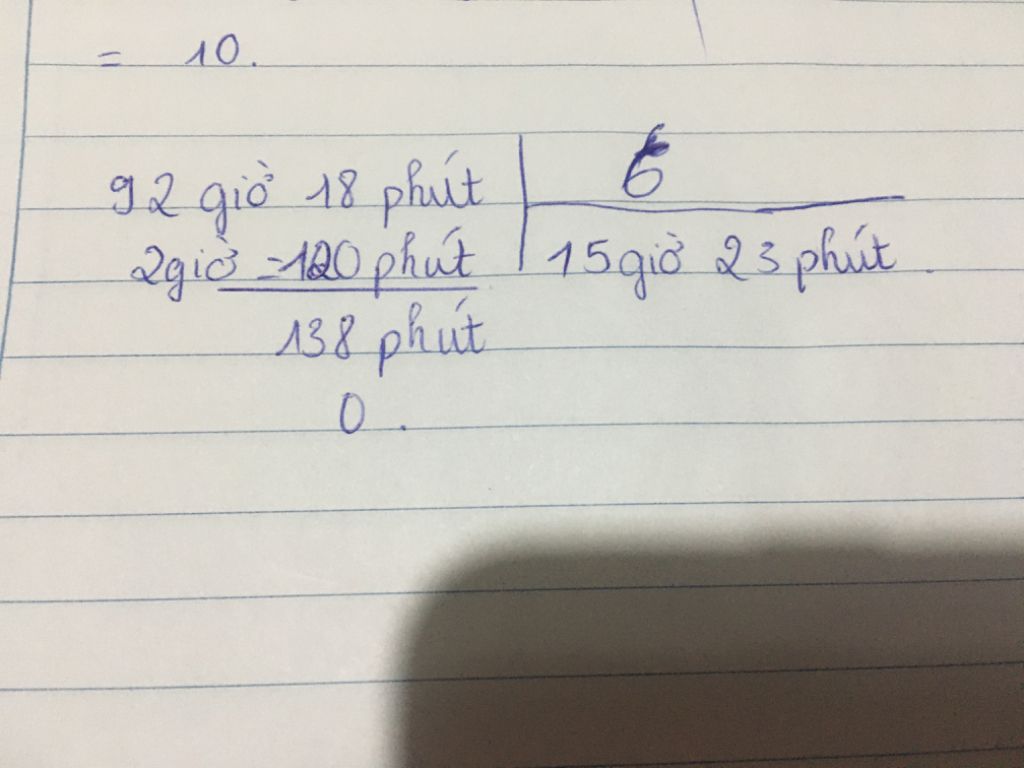 = 10.
92 giờ 18 phút 6
2giờ =120 phút 15 giờ 23 phút.
138 phút
0.